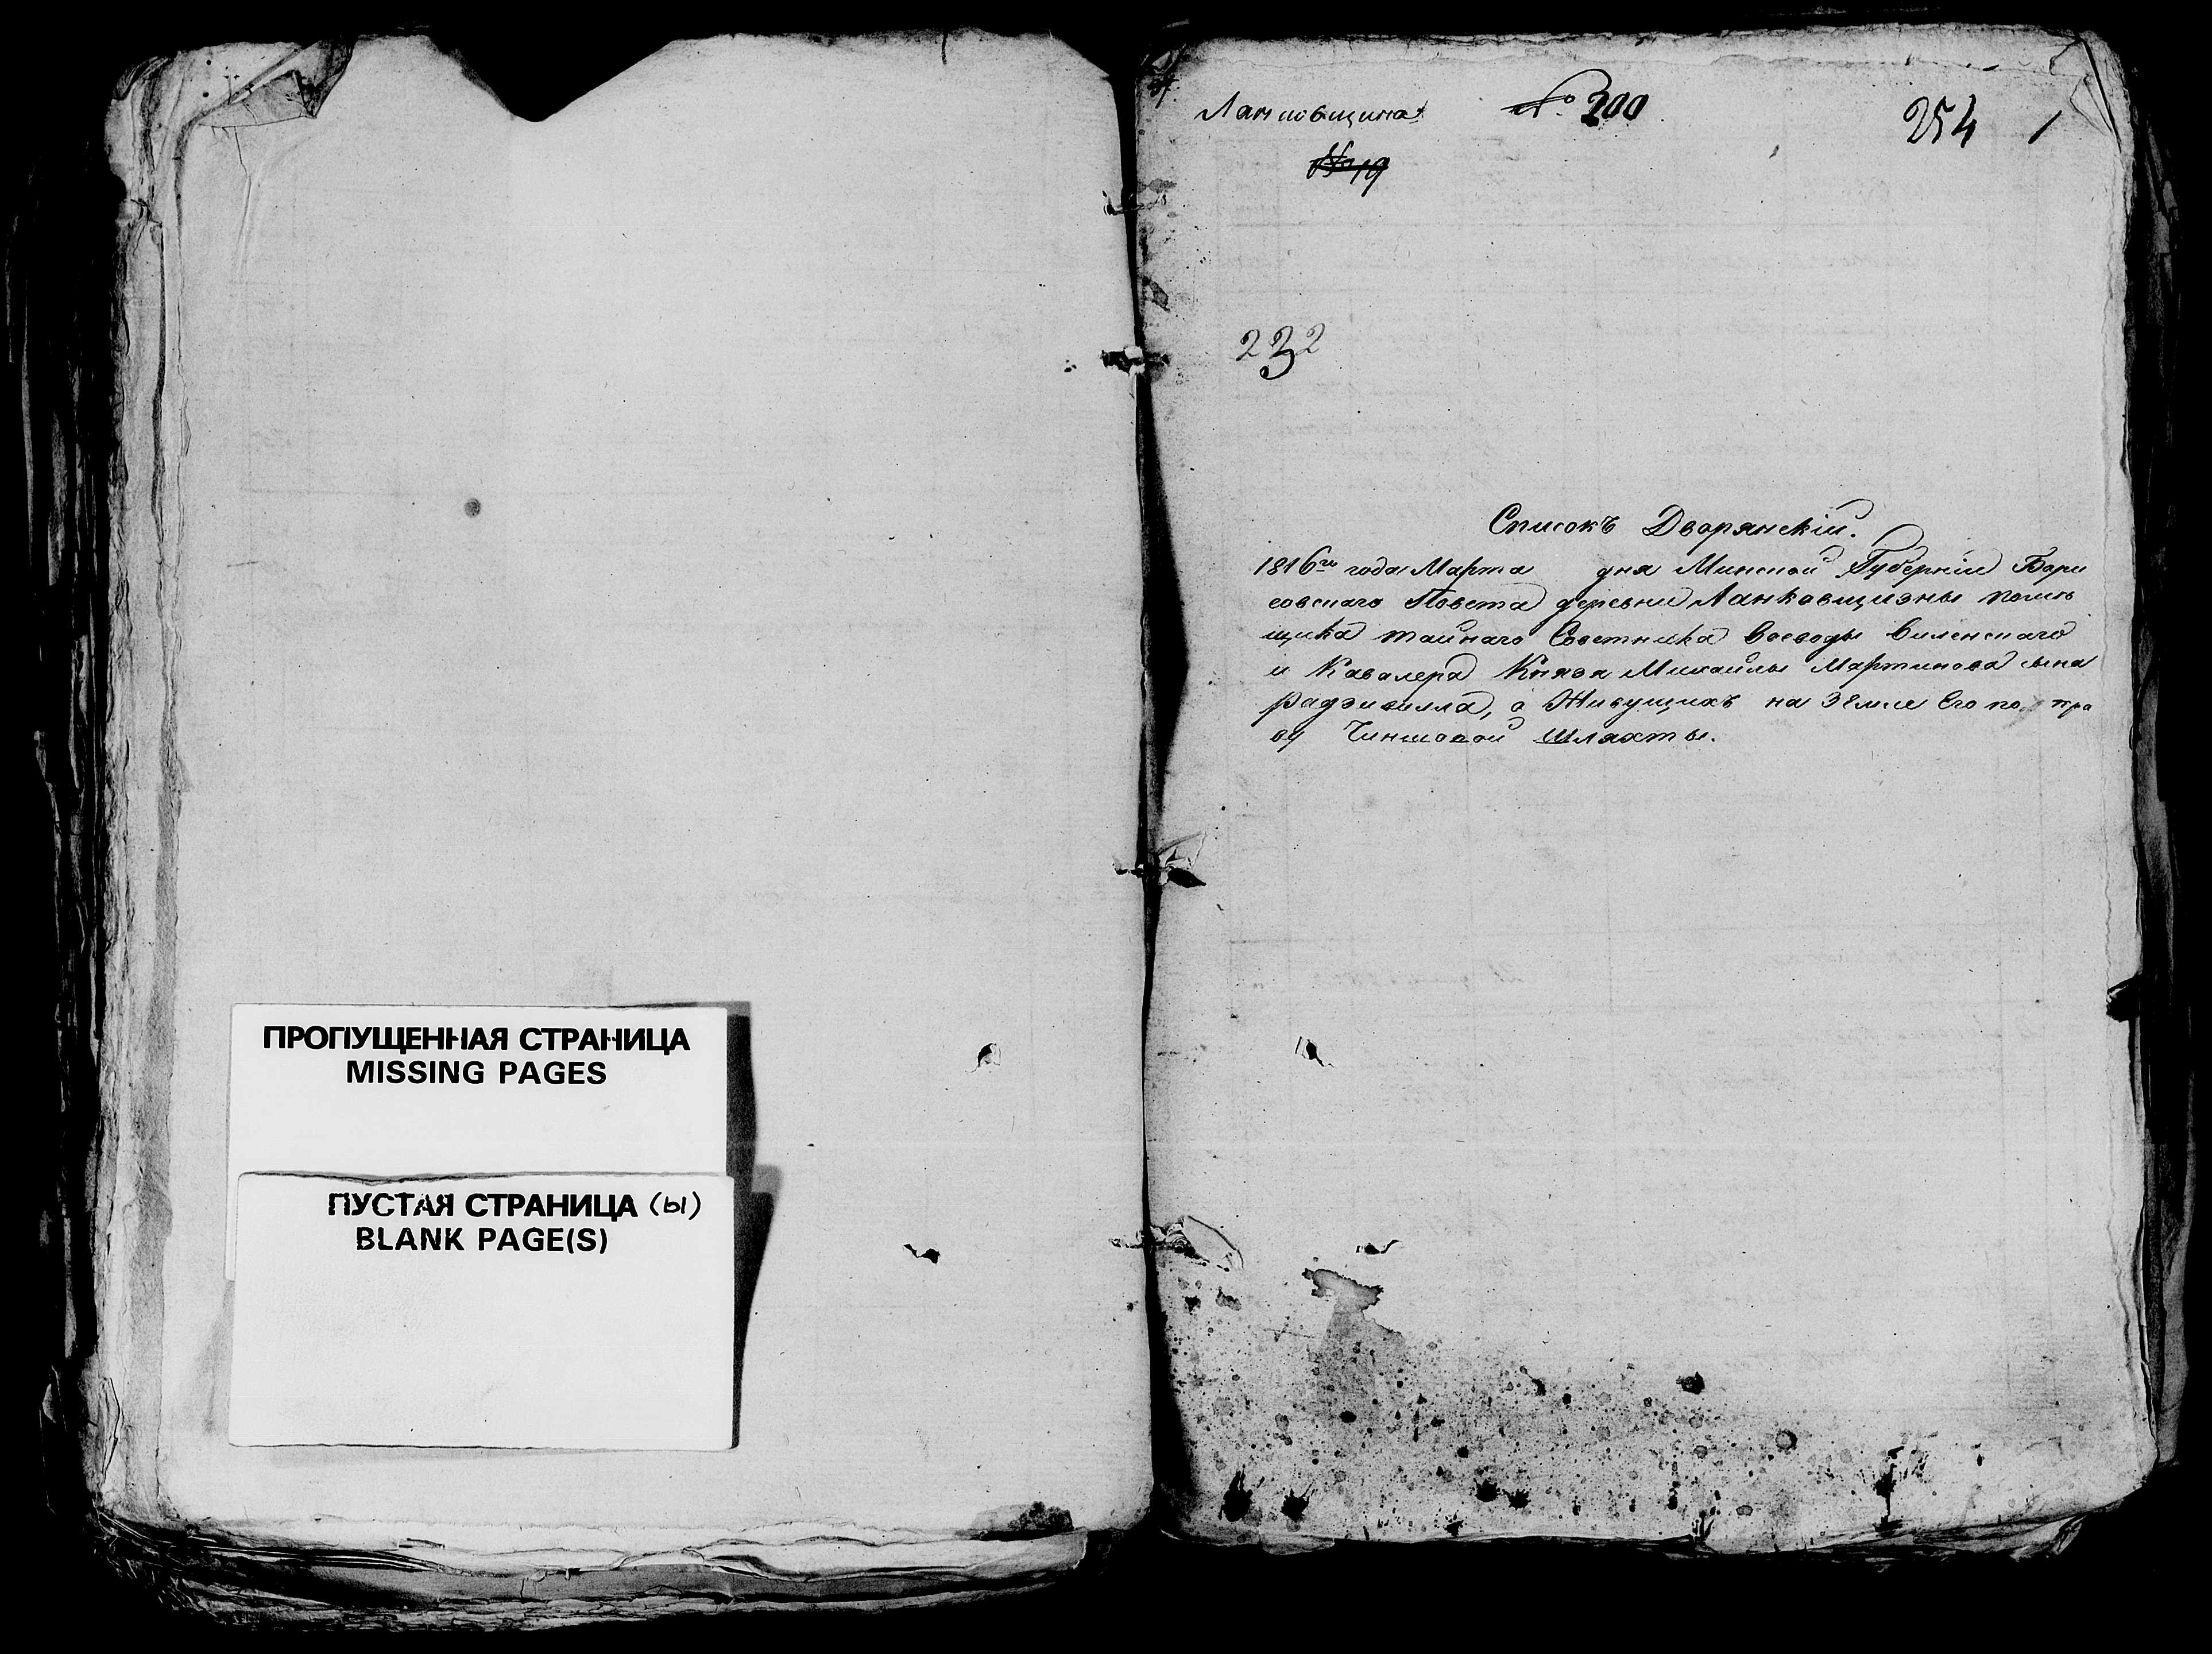 ПРОПУЩЕННАЯ СТРАНИЦА
MISSING PAGES
ПУСТАЯ СТРАНИЦА (ы)
BLANK PAGE(S)
Ланковщина № 200 254 1
№ 19
232
Списокъ Дворянскій.
1816го года Марта дня Минской Губерніи Бори
совскаго Повета деревни Ланковщизны помѣ
щика тайнаго Советника Воеводы Виленскаго
и Кавалера Князя Михайлы Мартинова сына
Радзивилла, а Живущихъ на Земле Его по пра
ву Чиншовой Шляхты.